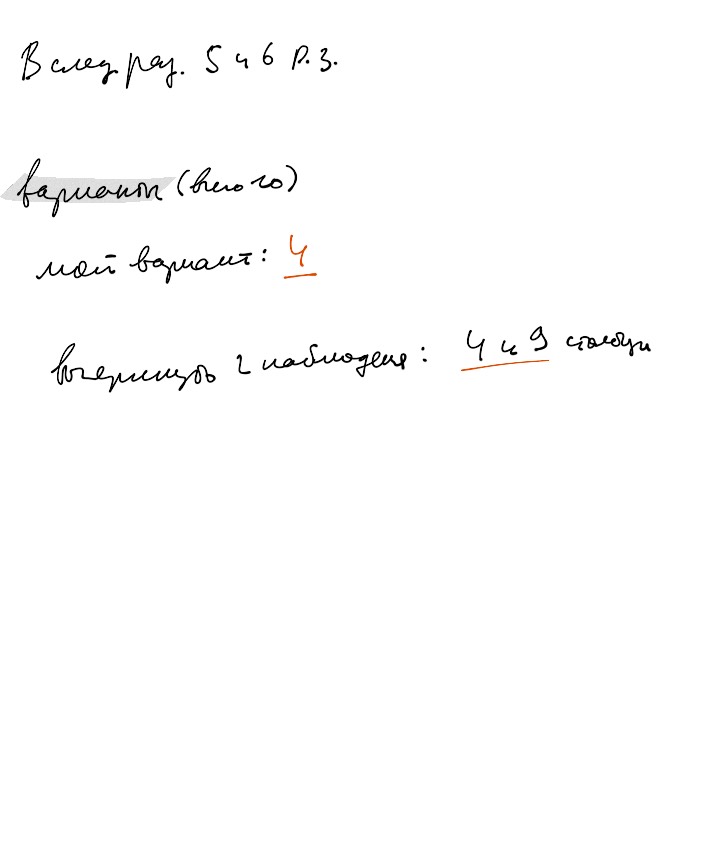 В след раз. 5 и 6 р.з.
варианты (всего 10)
мой вариант: 4
вычеркнуть 2 наблюдения: 4 и 9 столбцы